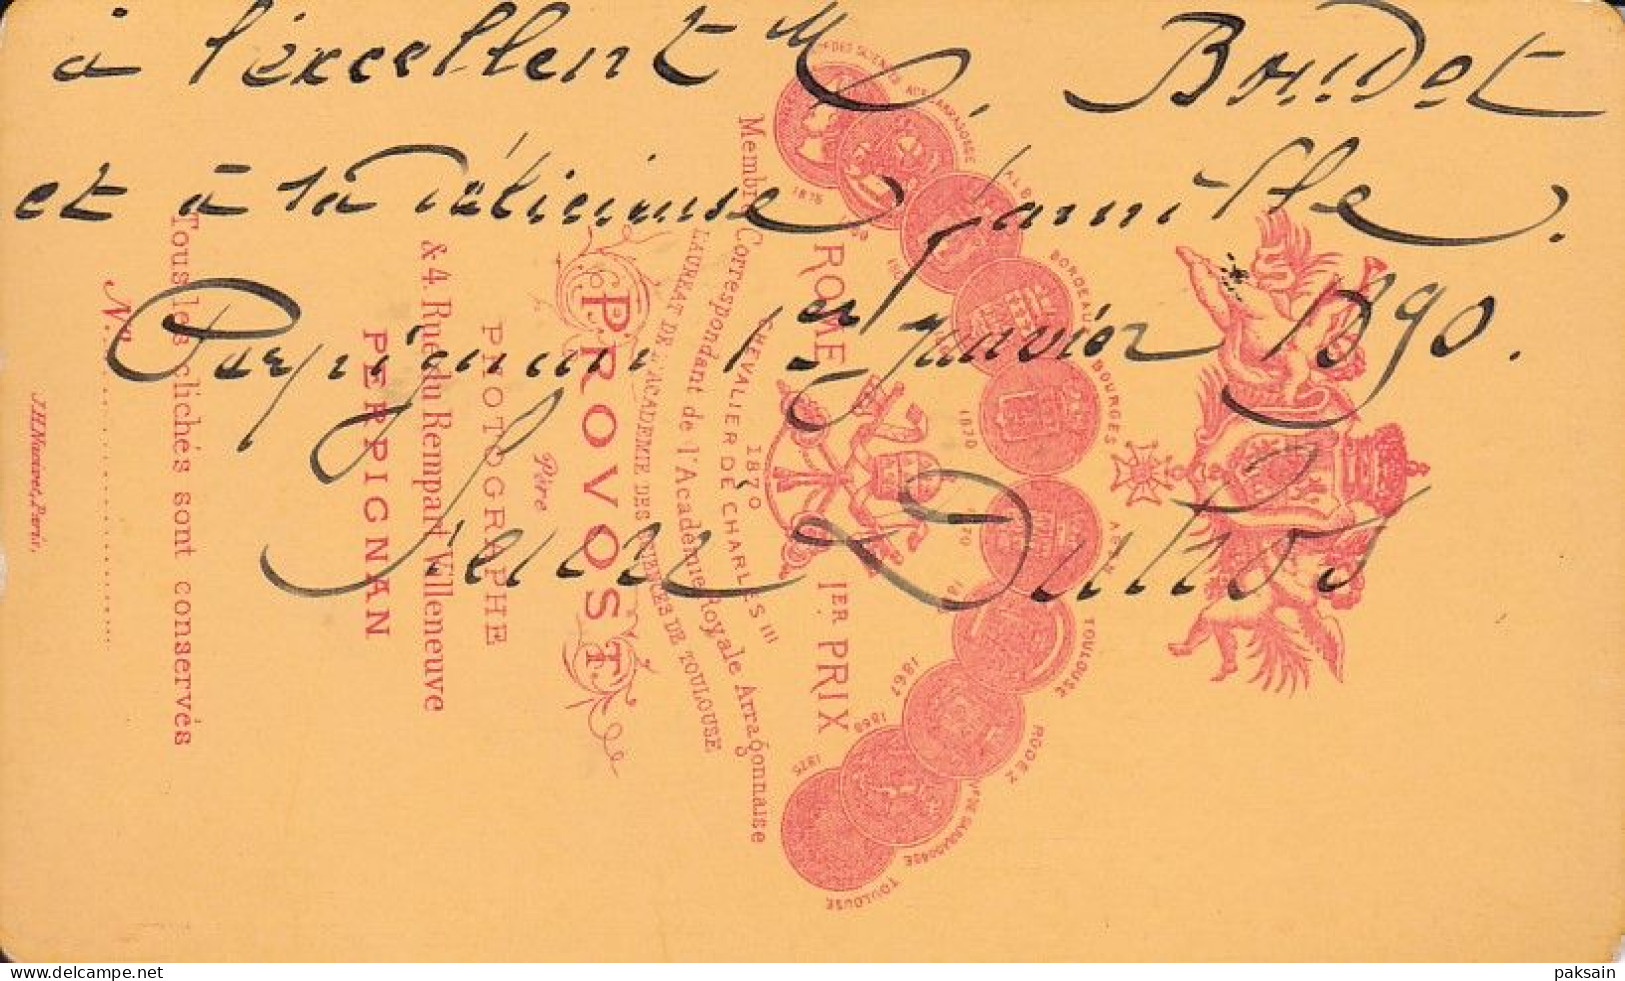 à l'excellent M. Boudet
et à la délicieuse famille.
Perpignan 1er Janvier 1890.
Dutros
ROME 1ER PRIX
1870
CHEVALIER DE CHARLES III
Membre Correspondant de l'Académie Royale Arragonnaise
LAUREAT DE L'ACADEMIE DES SCIENCES DE TOULOUSE
PROVOST
Père
PHOTOGRAPHE
& 4, Rue du Rempart Villeneuve
PERPIGNAN
Tous les clichés sont conservés
N.º
BORDEAUX
BOURGES
1870
TOULOUSE
1867
RODEZ
1868
1875
TOULOUSE
1876
delcampe.net
paksain